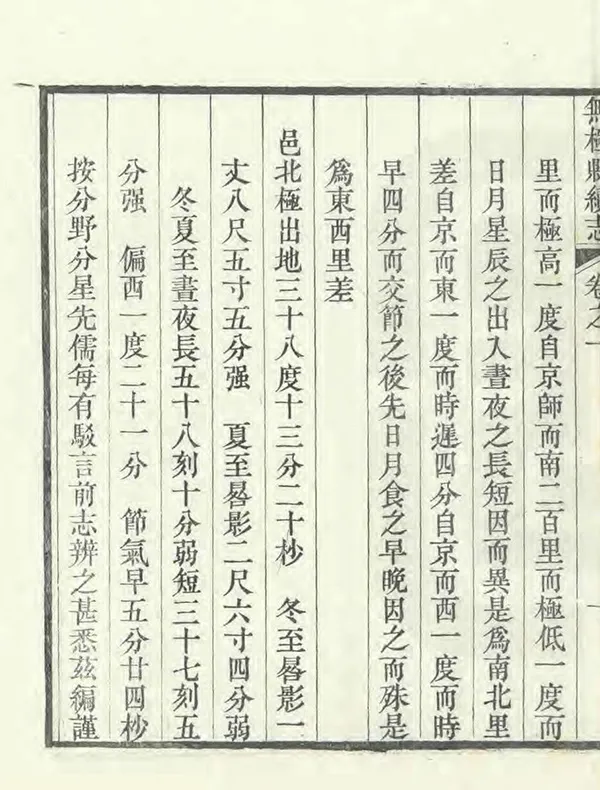 無極縣續志 卷之一
里而極高一度自京師而南二百里而極低一度而
日月星辰之出入晝夜之長短因而異是爲南北里
差自京而東一度而時遲四分自京而西一度而時
早四分而交節之後先日月食之早晚因之而殊是
爲東西里差
邑北極出地三十八度十三分二十秒 冬至晷影一
丈八尺五寸五分强 夏至晷影二尺六寸四分弱
冬夏至晝夜長五十八刻十分弱短三十七刻五
分强 偏西一度二十一分 節氣早五分廿四秒
按分野分星先儒每有駁言前志辨之甚悉茲編謹